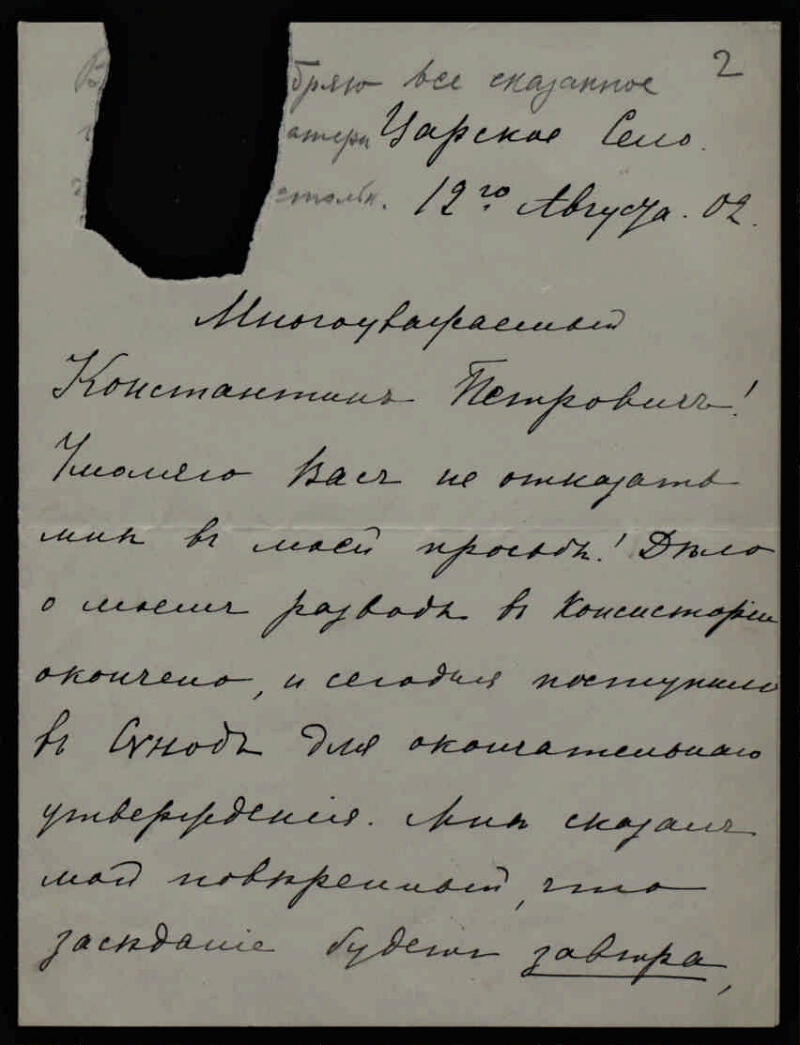 2
бряю все сказанное
Царское Село.
12го Августа. 02.
Многоуважаемый
Константинъ Петровичъ!
Умоляю Васъ не отказать
мнѣ въ моей просьбѣ! Дѣло
о моемъ разводѣ въ Консисторіи
окончено, и сегодня поступило
въ Сѵнодъ для окончательнаго
утвержденія. Мнѣ сказалъ
мой повѣренный, что
засѣданіе будетъ завтра,